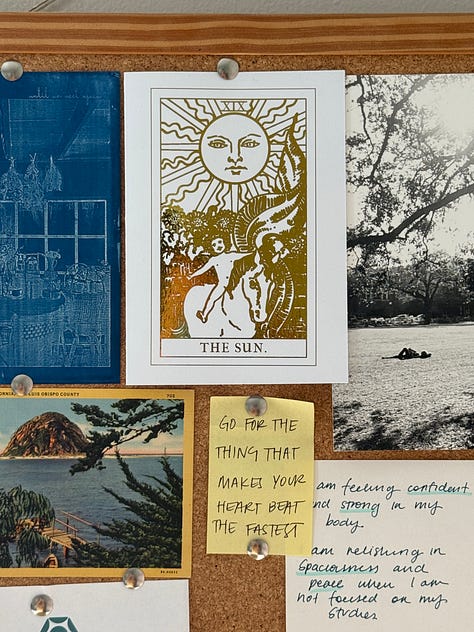 XIX
THE SUN.
LUIS OBISPO COUNTY
703
GO FOR THE
THING THAT
MAKES YOUR
HEART BEAT
THE FASTEST
am feeling confident
nd strong in my
body.
am relishing in
spaciousness and
peace when I am
not focused on my
studies